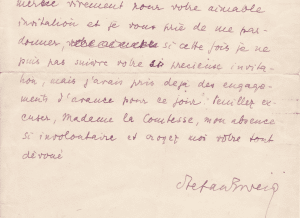 mercie vivement pour votre aimable
invitation et je vous prie de me par-
donner, si cette fois je ne
puis pas suivre votre précieuse invita-
tion; mais j'avais pris déjà des engage-
ments d'avance pour ce jour. Veuillez ex-
cuser, Madame la Comtesse, mon absence
si involontaire et croyez moi votre tout
dévoué
Stefan Zweig